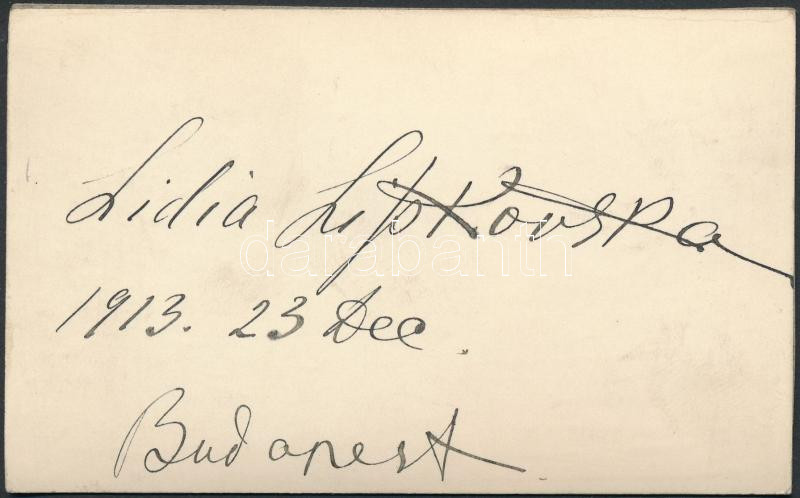 Lidia Lipkovska
darabanth
1913. 23 Dec.
Budapest